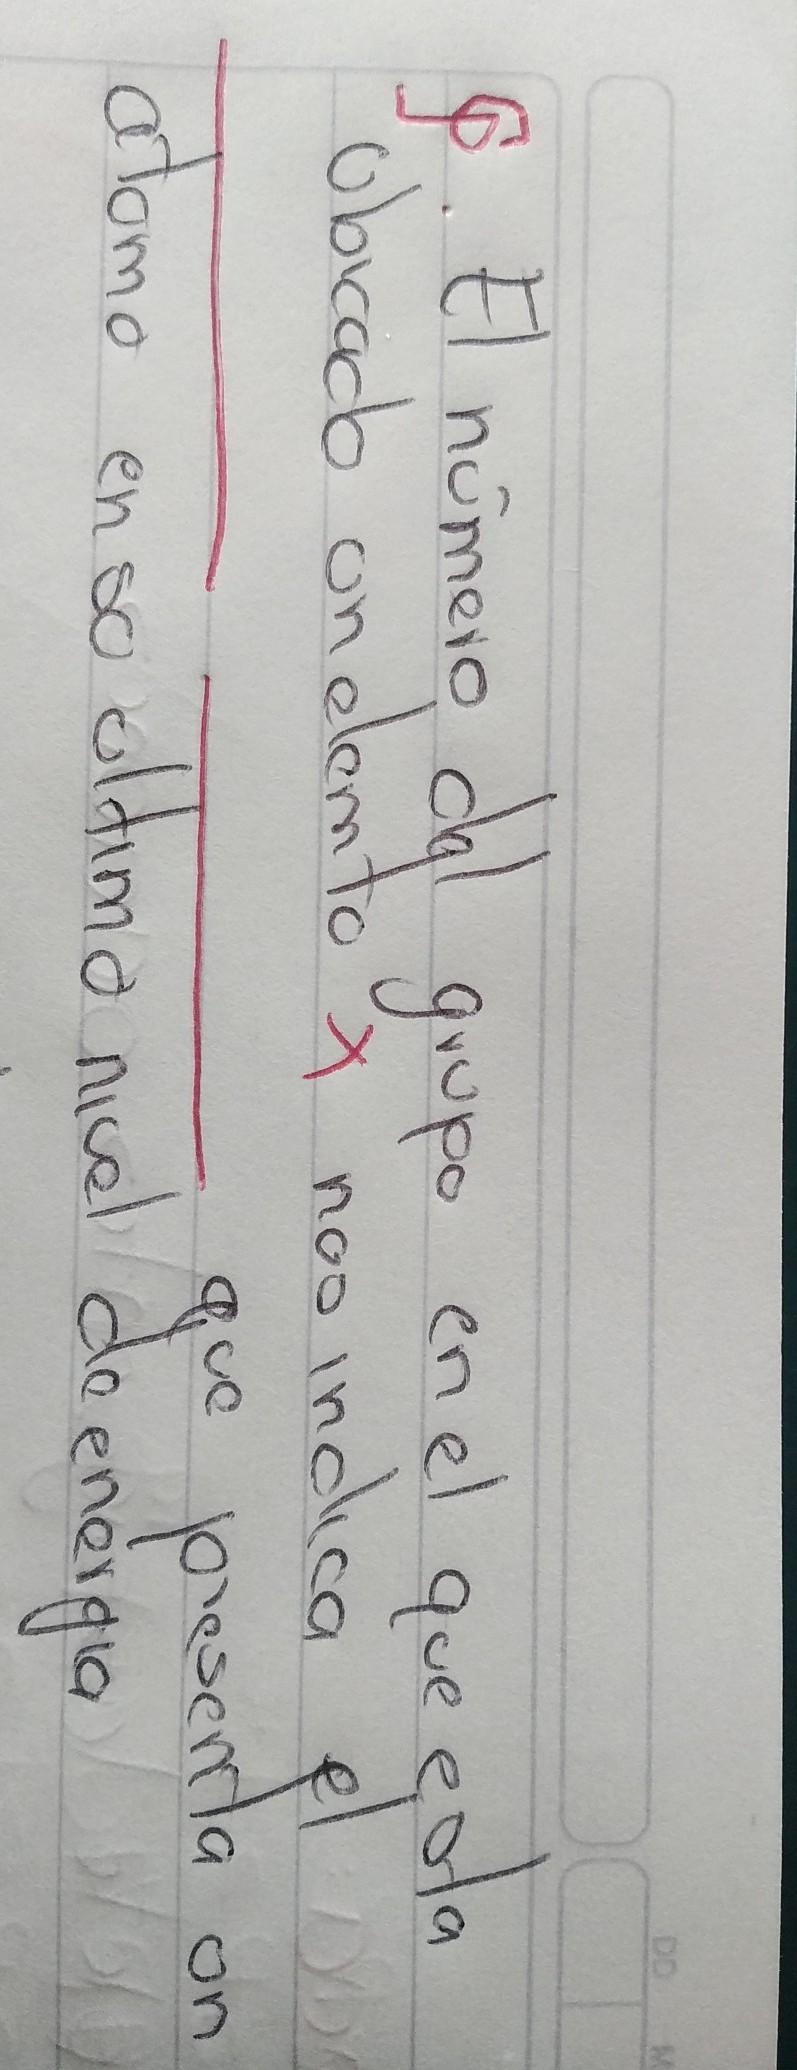 9. El número del grupo en el que esta
ubicado un elemto x nos indica el
que presenta un
atomo en su ultimo nivel de energia